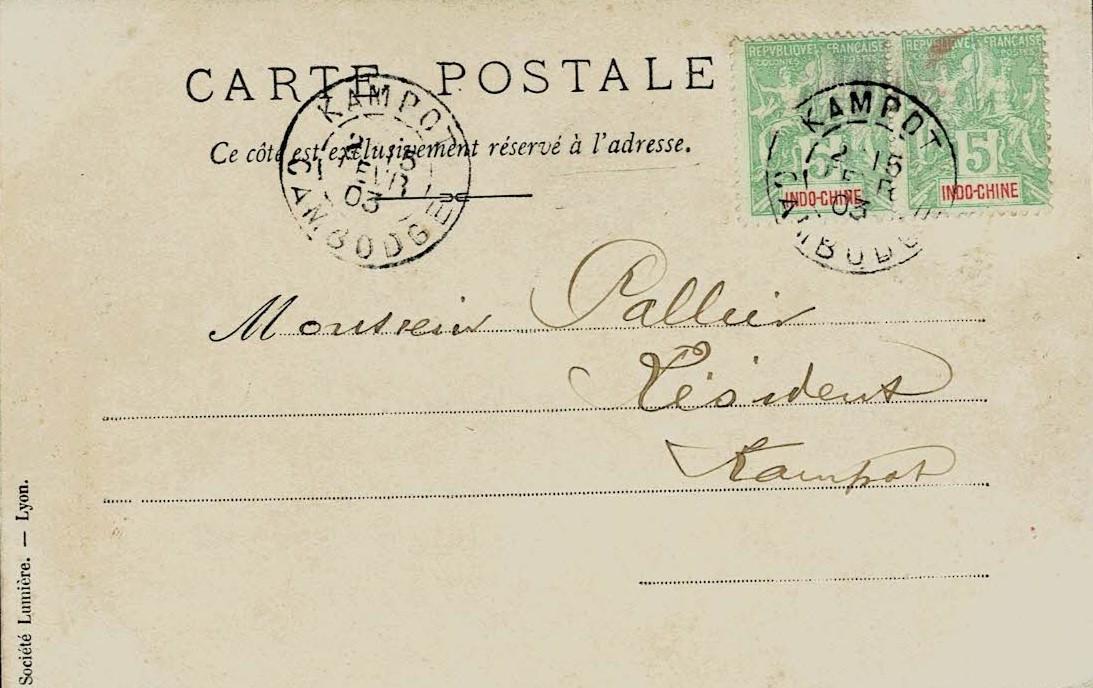 CARTE POSTALE
Ce côté est exclusivement réservé à l'adresse.
KAMPOT
2
15
FEVR
03
CAMBODGE
REPVBLIQVE FRANÇAISE
COLONIES
5
INDO-CHINE
REPVBLIQVE FRANÇAISE
POSTES
5
INDO-CHINE
KAMPOT
2
15
FE R
03
CAMBODG
Monsieur Pallier
Résident
Kampot
Société Lumière. — Lyon.